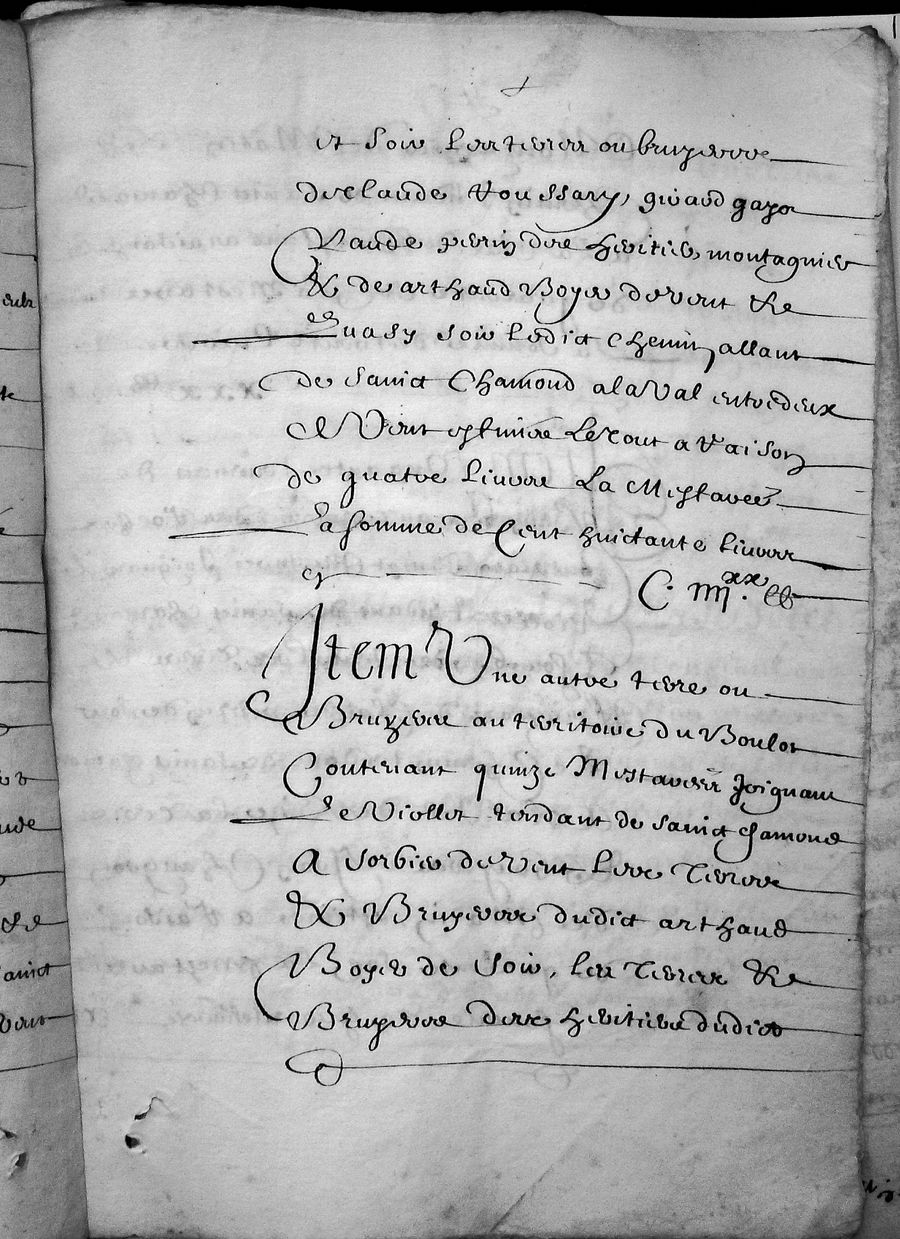 et soir les terres ou bruyerre
de claude Roussary, girard gayot
Claude perin des heritiers montagnier
& de arthaud Boyer de vent &c
Quasy soir ledict chemin allant
de Sainct Chamond a laval entredeux
et Vent estimée Le tout a raison
de quatre livres La Mestaree
La somme de Cent huictante livres
cy C. IIII xx. ll
Item Une autre terre ou
Bruyerre au territoire du Boulot
Contenant quinze Mestarées Joignant
Le Viollet tendant de sainct chamond
A sorbier de vent Les Terres
& Bruyerres dudict arthaud
Boyer de Soir, les Terres &c
Bruyerre des heritiers dudict